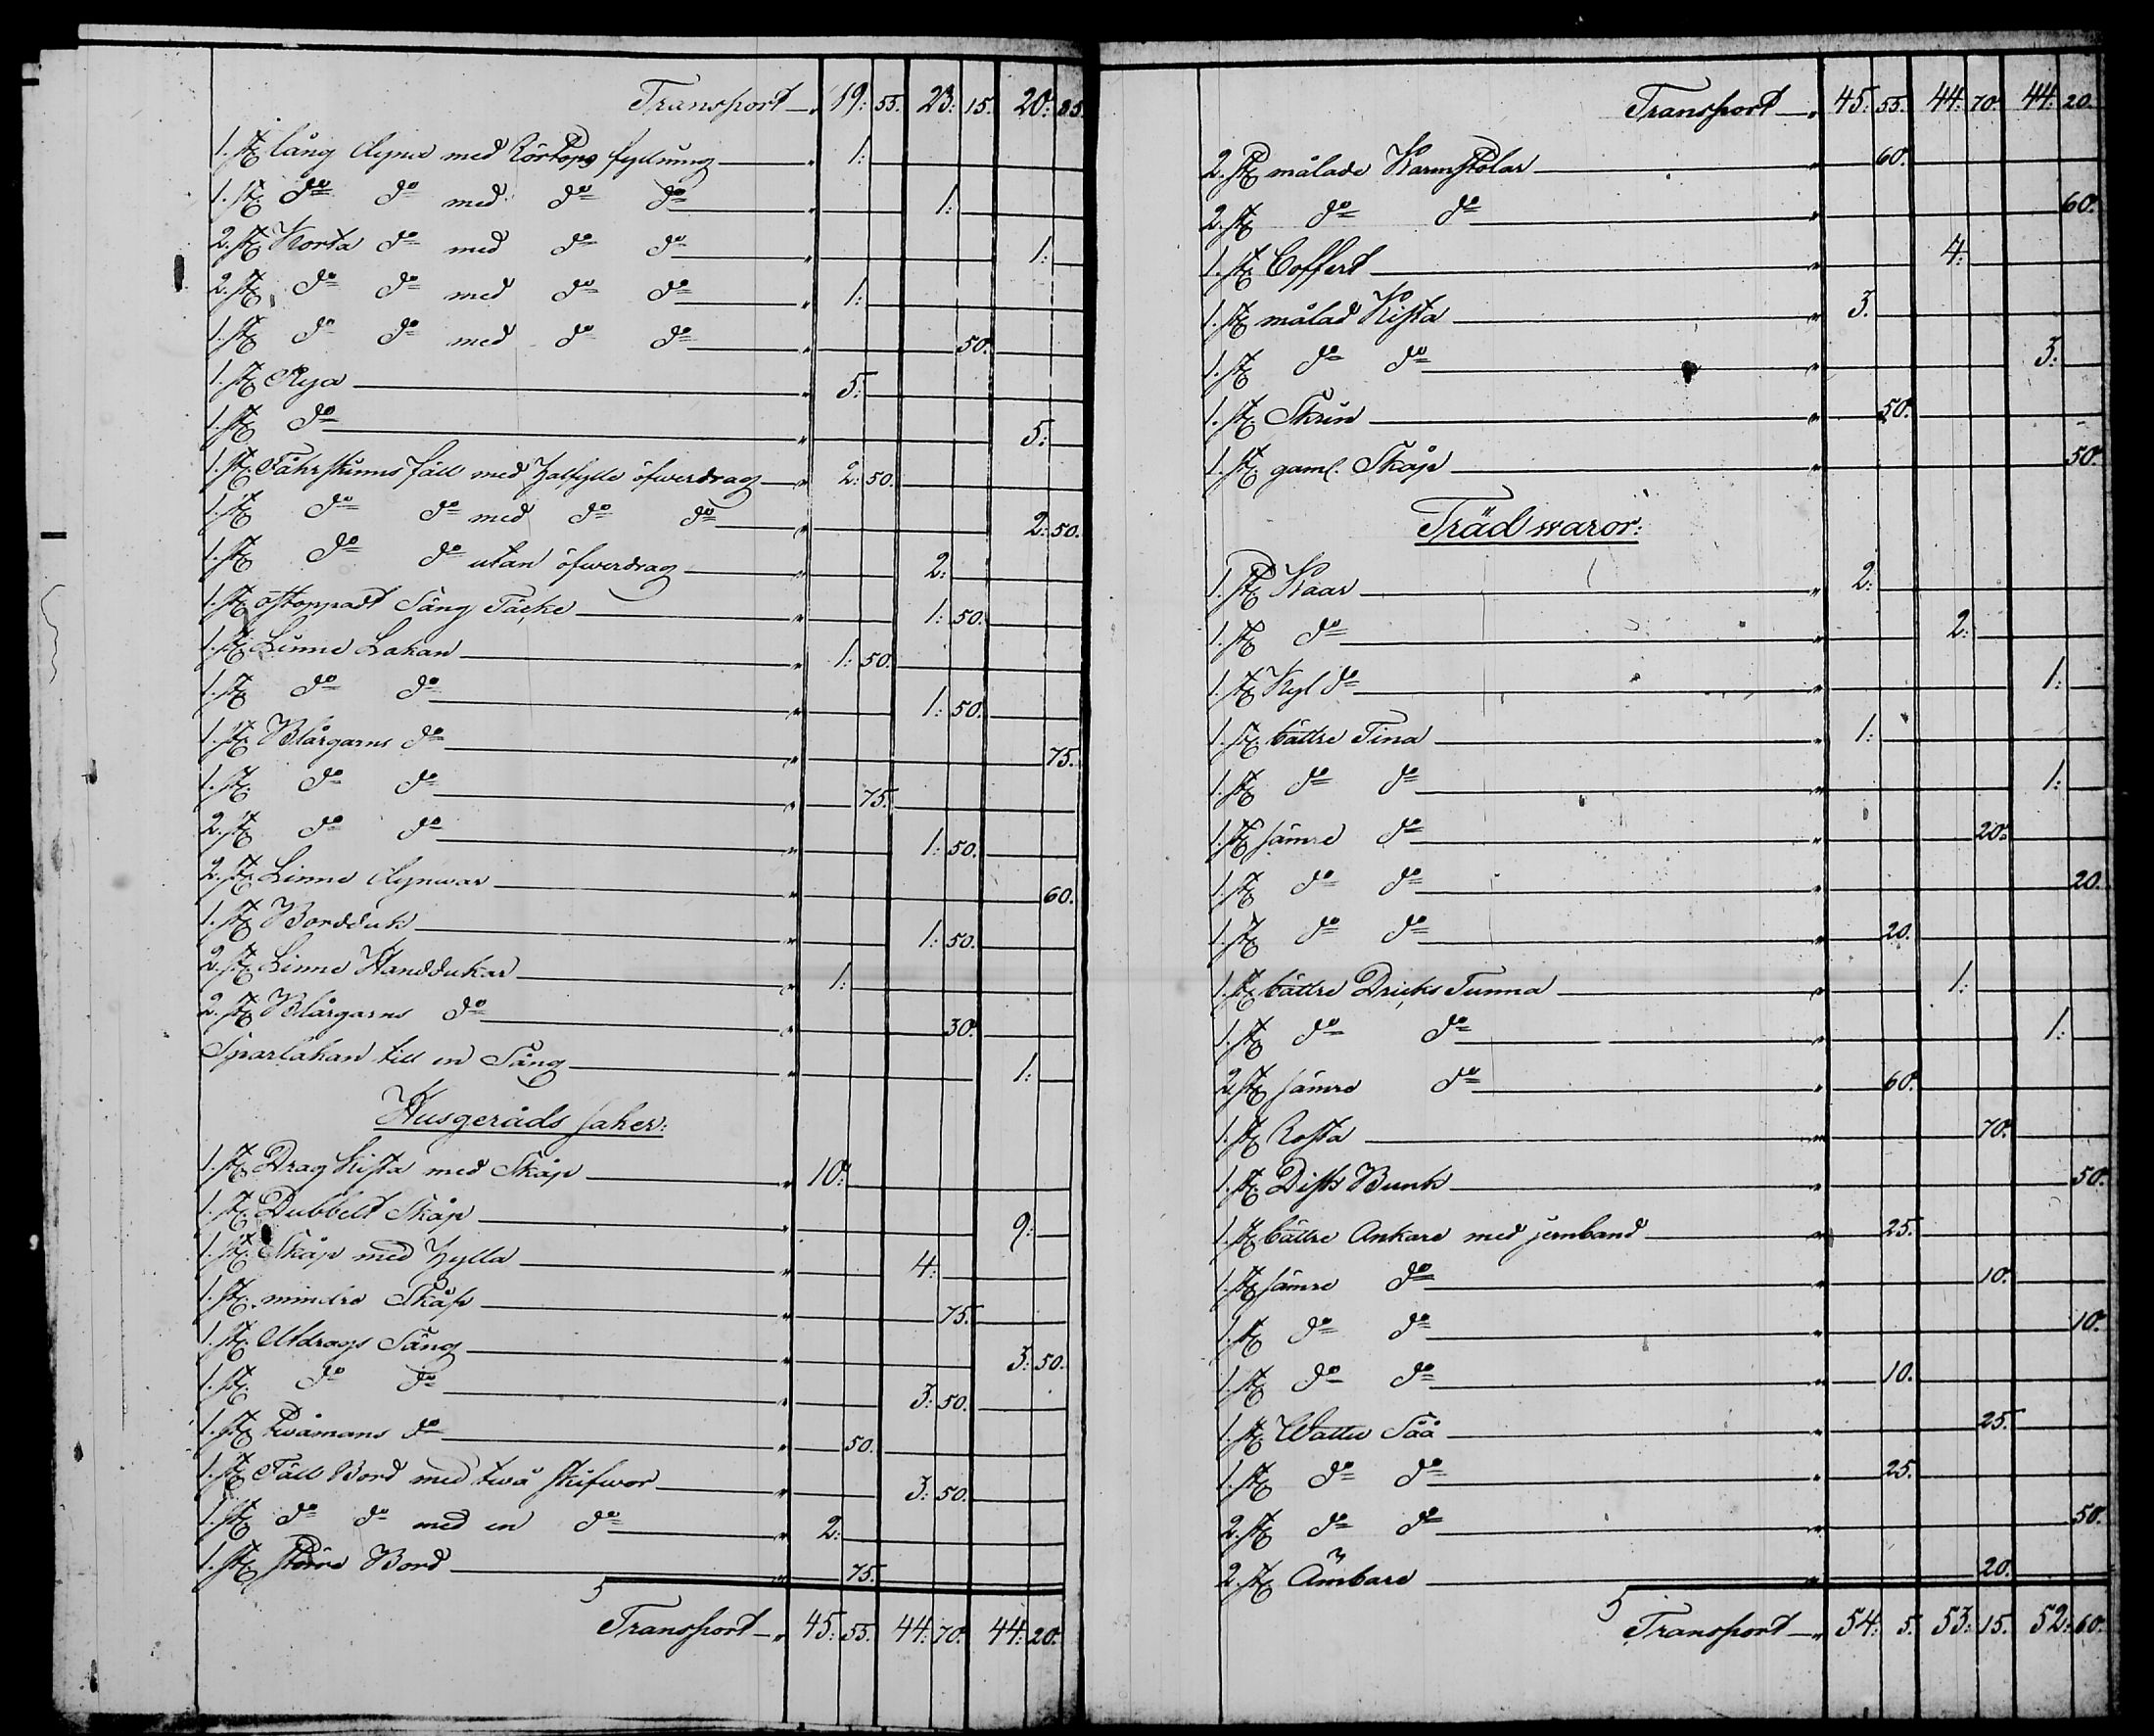 Transport 19: 55. 23: 15. 20: 85.
1. st. lång dyna med Rörtopps fyllning 1:
1. st. do do med do do 1:
2. st. Korta do med do do 1:
2. st. do do med do do 1:
1. st. do do med do do 50.
1. st. Rya 5:
1. st. do 5:
1. st. Fåhrskinns fäll med halfylle öfwerdrag 2: 50.
1. st. do do med do do 2: 50.
1. st. do do utan öfwerdrag 2:
1. st. ostoppadt Säng Täcke 1: 50.
1. st. Linne Lakan 1: 50.
1. st. do do 1: 50.
1. st. Blårgarns do 75.
1. st. do do 75.
2. st. do do 1: 50.
2. st. Linne dynwar 60.
1. st. Bordduk 1: 50.
2. st. Linne Handdukar 1:
2. st. Blårgarns do 30.
Sparlakan till en Säng 1:
Husgeråds saker:
1. st. Drag Kista med Skåp 10:
1. st. Dubbelt Skåp 9:
1. st. Skåp med hylla 4:
1. st. mindre Skåp 75.
1. st. Utdrags Säng 3: 50.
1. st. do do 3: 50.
1. st. twåmans do 50.
1. st. Fäll Bord med twå skifwor 3: 50.
1. st. do do med en do 2:
1. st. större Bord 75.
Transport 45: 55. 44: 70. 44: 20.
Transport 45: 55. 44: 70. 44: 20.
2. st. målade Karmstolar 60.
2. st. do do 60.
1. st. Coffert 4:
1. st. målad Kista 3.
1. st. do do 3:
1. st. Skrin 50.
1. st. gaml. Skåp 50.
Träd waror:
1. st. Kaar 2:
1. st. do 2:
1. st. Kyl do 1:
1. st. bättre Tina 1:
1. st. do do 1:
1. st. sämre do 20.
1. st. do do 20.
1. st. do do 20.
1. st. bättre Dricks Tunna 1:
1. st. do do 1:
2. st. sämre do 60.
1. st. Rosta 70.
1. st. Disk Bunk 50.
1. st. bättre Ankare med jernband 25.
1. st. sämre do 10.
1. st. do do 10.
1. st. do do 10.
1. st. Watten Såå 25.
1. st. do do 25.
2. st. do do 50.
2. st. Ämbare 20.
Transport 54: 5. 53: 15. 52: 60.